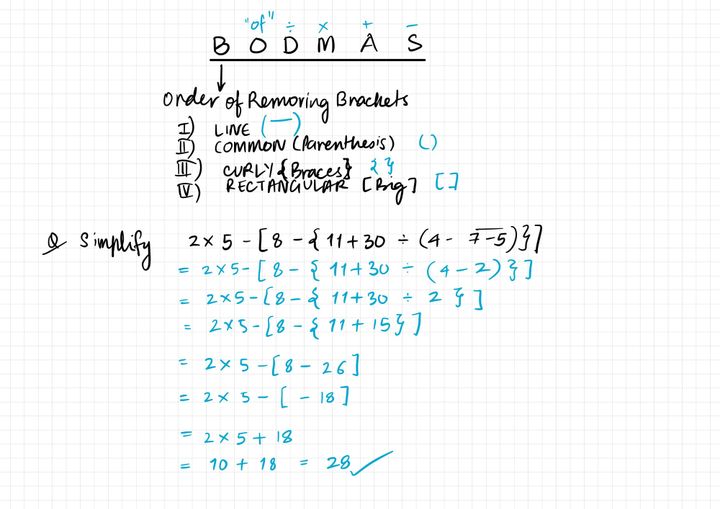 "of" ÷ × + −
B O D M A S
Order of Removing Brackets
I) LINE (—)
II) COMMON (Parenthesis) ()
III) CURLY {Braces} { }
IV) RECTANGULAR [Big] [ ]
Q Simplify 2 × 5 − [8 − { 11 + 30 ÷ (4 − 7̅ ̅−̅ ̅5̅)}]
= 2 × 5 − [8 − { 11 + 30 ÷ (4 − 2)}]
= 2 × 5 − [8 − { 11 + 30 ÷ 2 }]
= 2 × 5 − [8 − { 11 + 15}]
= 2 × 5 − [8 − 26]
= 2 × 5 − [ − 18]
= 2 × 5 + 18
= 10 + 18 = 28 ✓